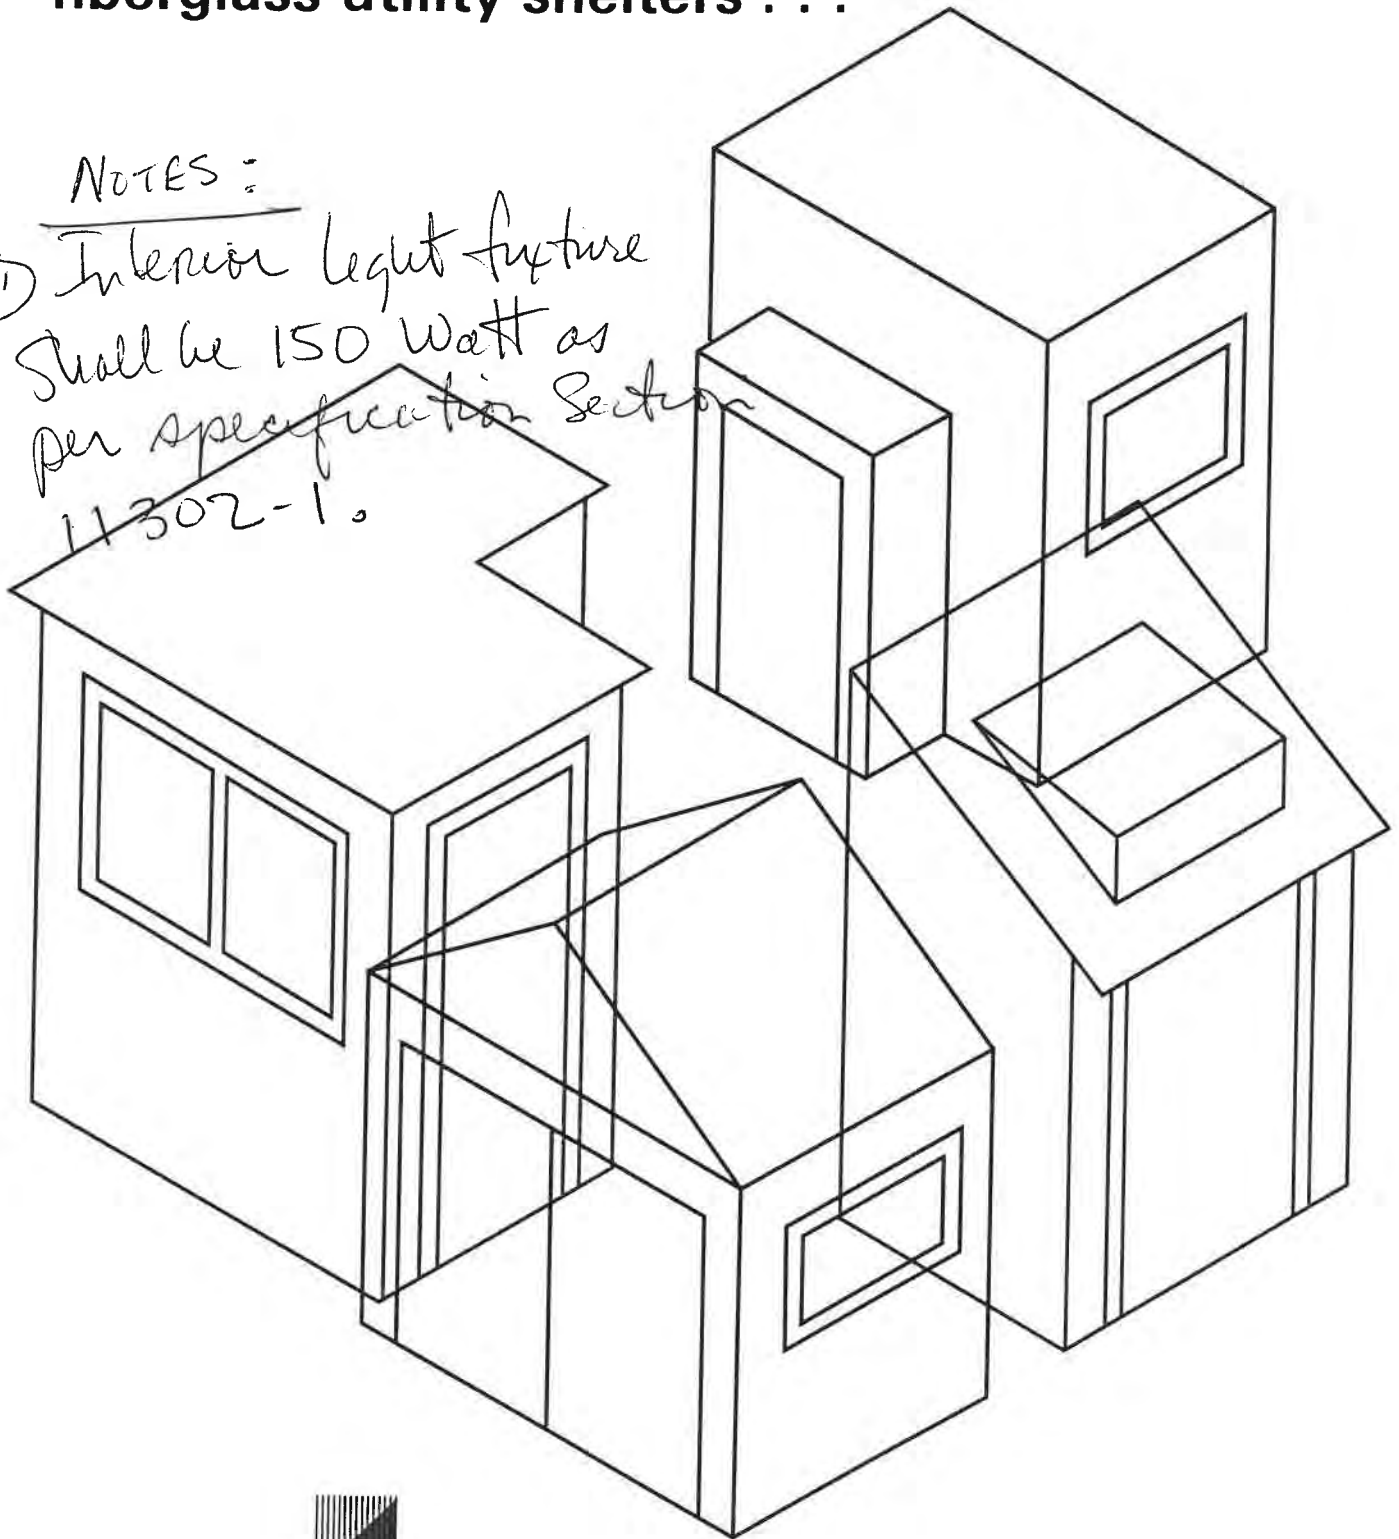 fiberglass utility shelters . . .
NOTES :
1) Interior light fixture
Shall be 150 Watt as
per specification Section
11302-1.